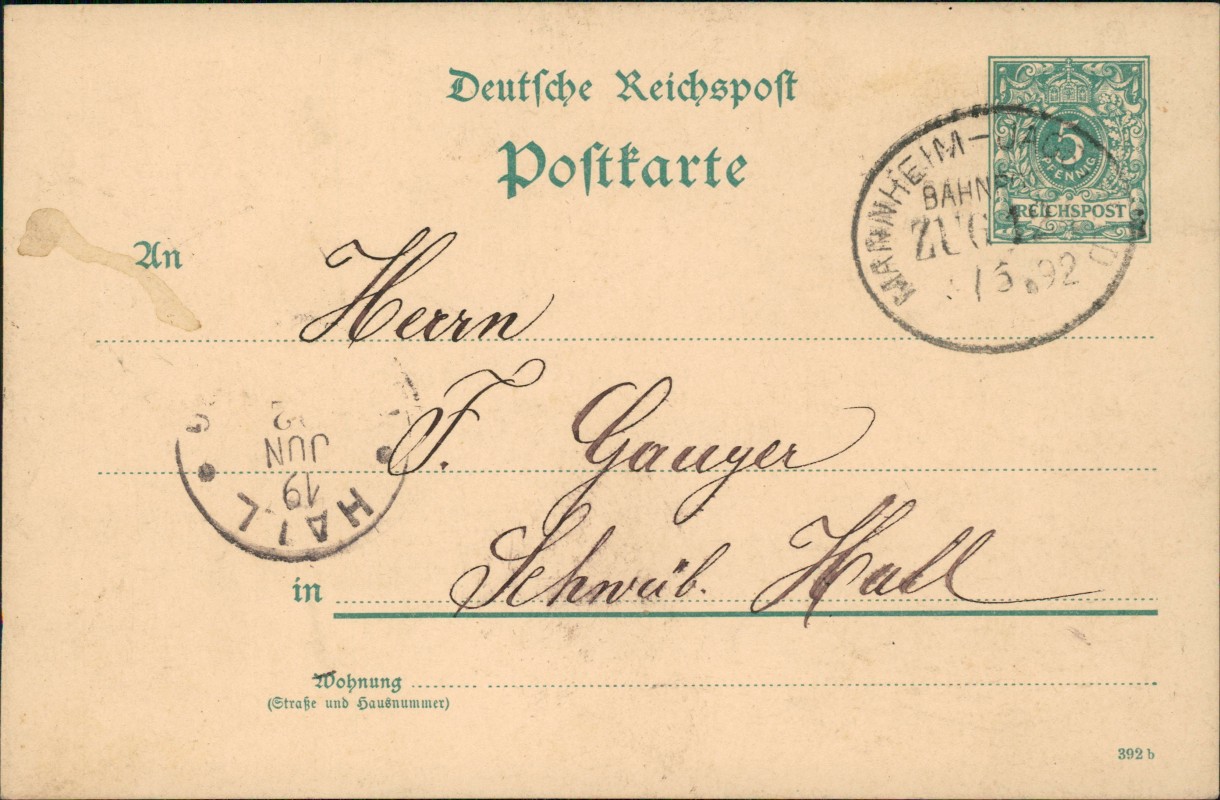 Deutsche Reichspost
Postkarte
5
PFENNIG
REICHSPOST
MANNHEIM-
ZUG
5.92
An
Herrn
F. Gauger
HALL
19
JUN
in Schwäb. Hall
Wohnung
(Straße und Hausnummer)
392 b